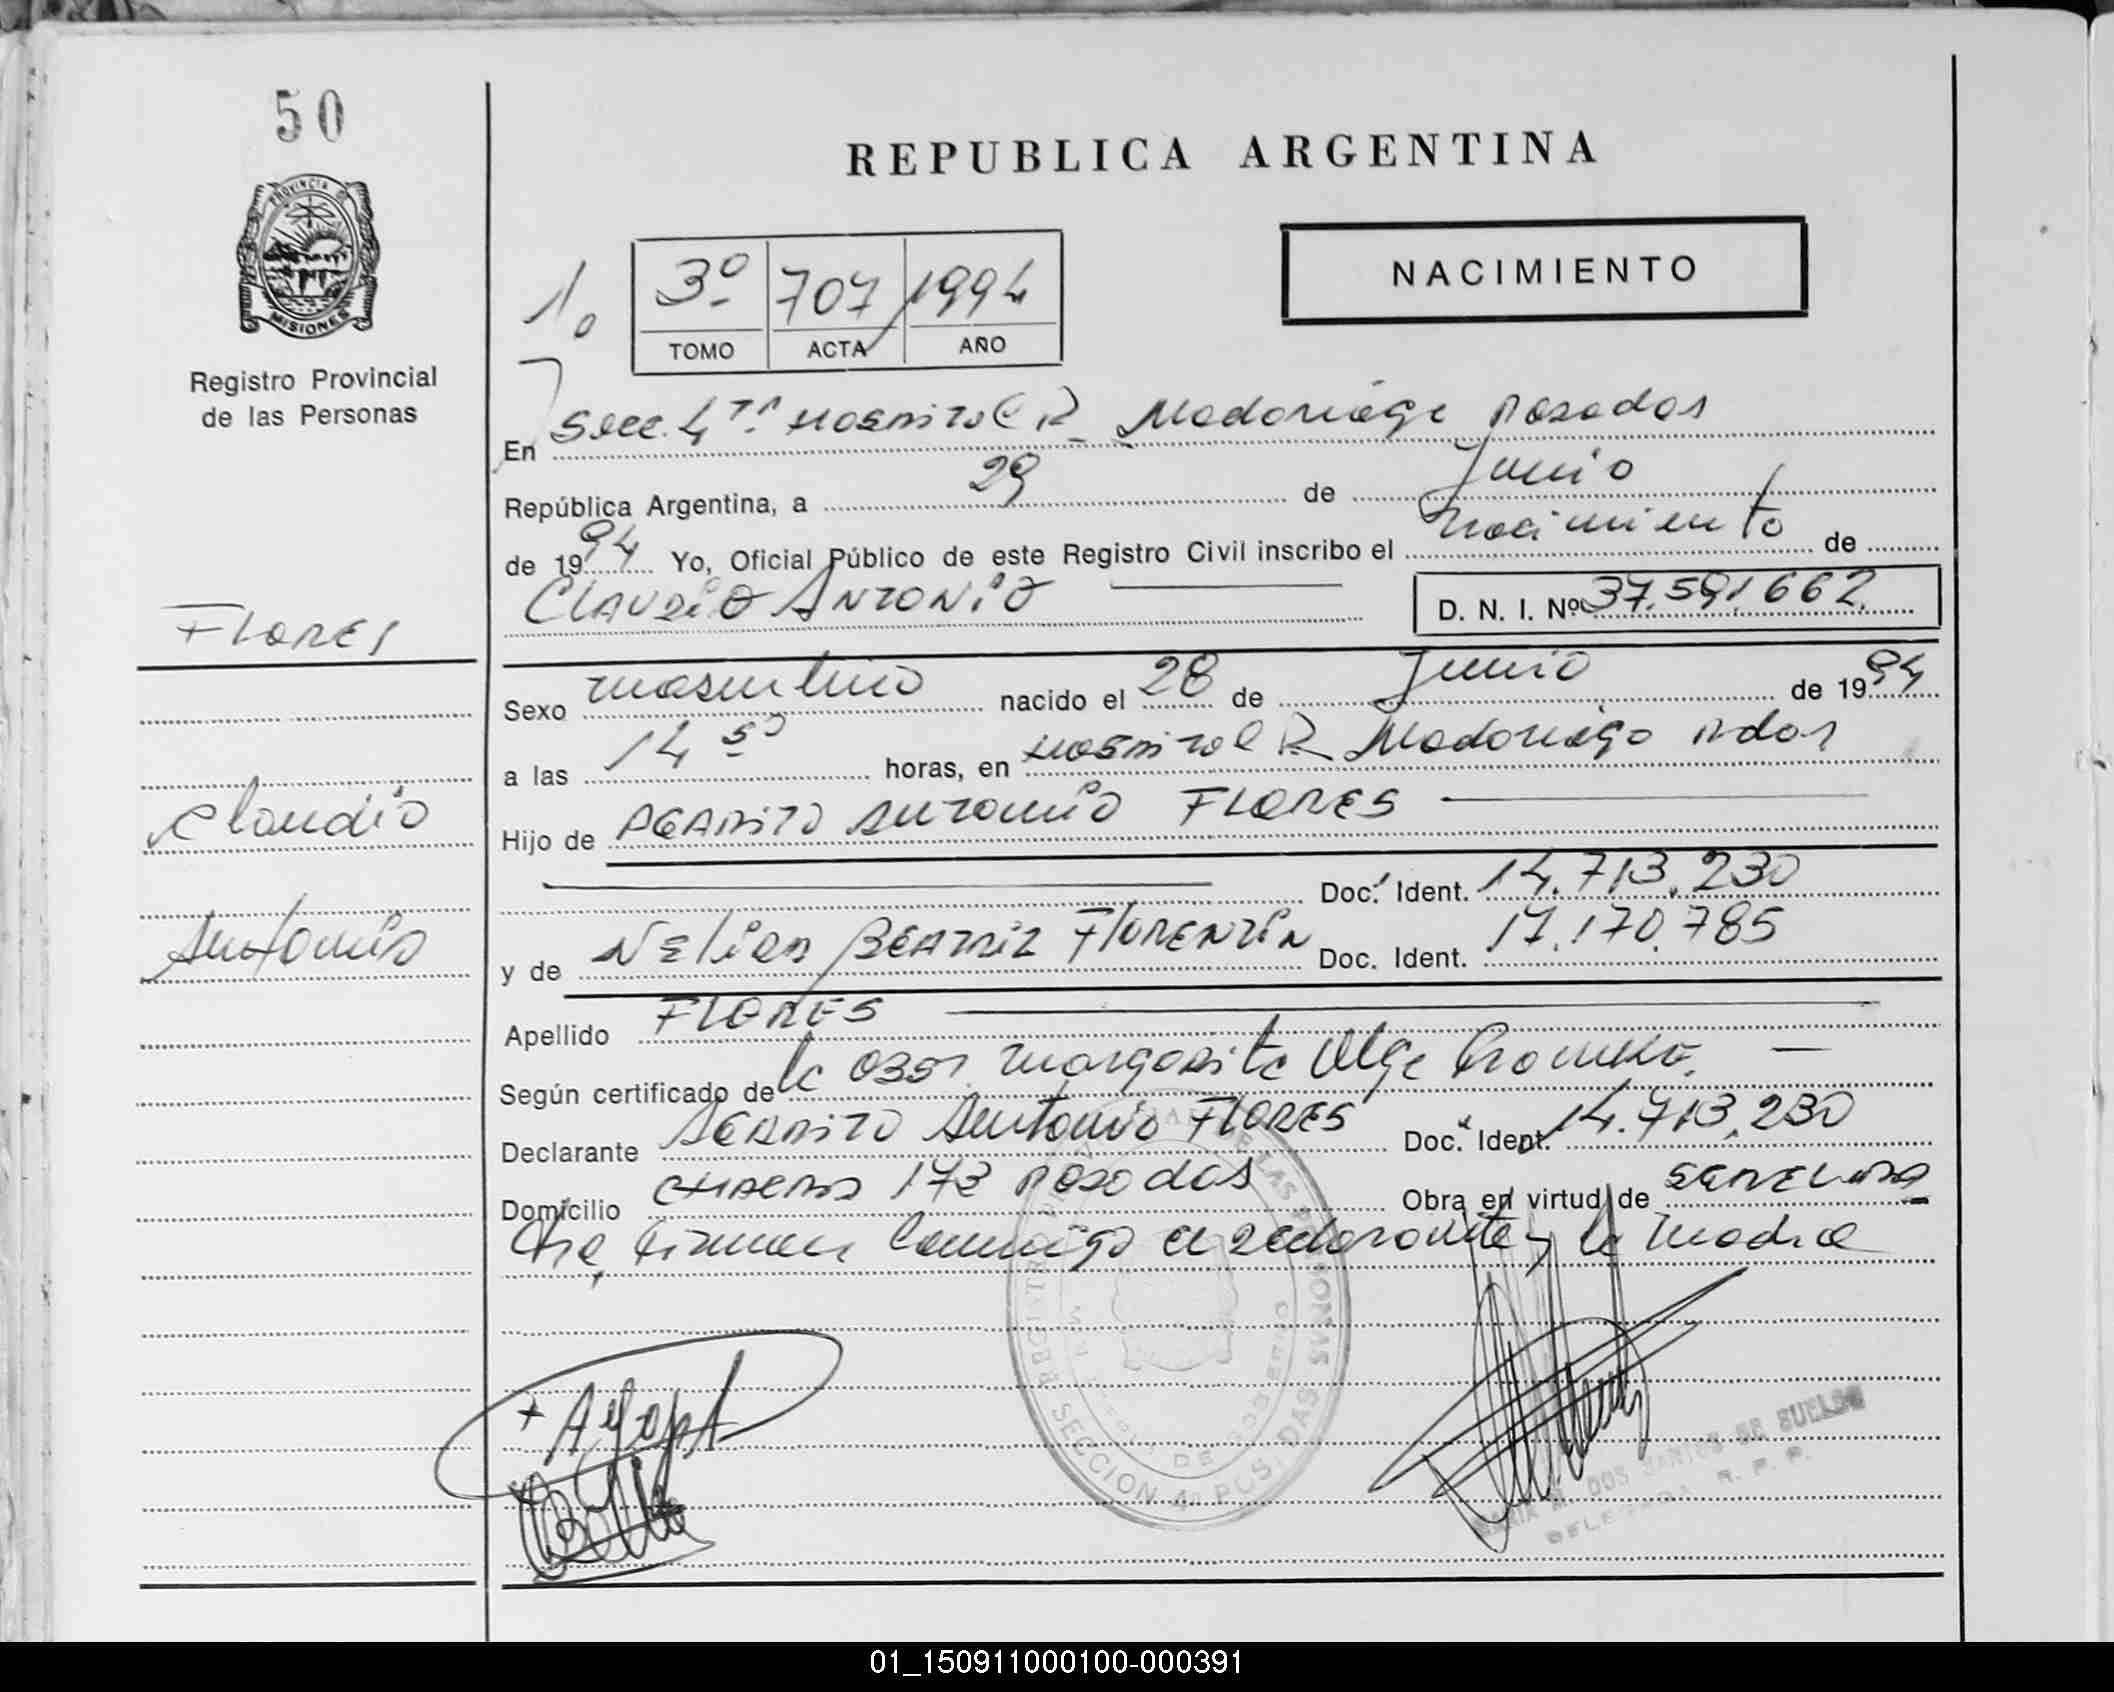 50
REPUBLICA ARGENTINA
PROVINCIA D
MISIONES
Registro Provincial
de las Personas
NACIMIENTO
1o
3º 707 1994
TOMO ACTA AÑO
En Secc. 4ta. Hospital R. Madariaga Posadas
República Argentina, a 29 de Junio
de 1994 Yo, Oficial Público de este Registro Civil inscribo el nacimiento de
CLAUDIO ANTONIO
D. N. I. Nº 37.591.662.
FLORES
Sexo masculino nacido el 28 de Junio de 1994
a las 14 50 horas, en Hospital R. Madariaga Pdas
Claudio
Hijo de AGAPITO ANTONIO FLORES
Doc. Ident. 14.713.230
Antonio
y de NELIDA BEATRIZ FLORENTIN Doc. Ident. 17.170.785
Apellido FLORES
Según certificado de la Obst. Margarita Olga
Declarante AGAPITO Antonio FLORES Doc. Ident. 14.713.230
Domicilio CHACRA 173 Posadas Obra en virtud de
firman conmigo el declarante y la madre
REGISTRO PROVINCIAL DE LAS PERSONAS
SECCION 4ª PCS. DAS
+ Agapt
MARIA M. DOS SANTOS DE
DELEGADA R. P. P.
01_150911000100-000391